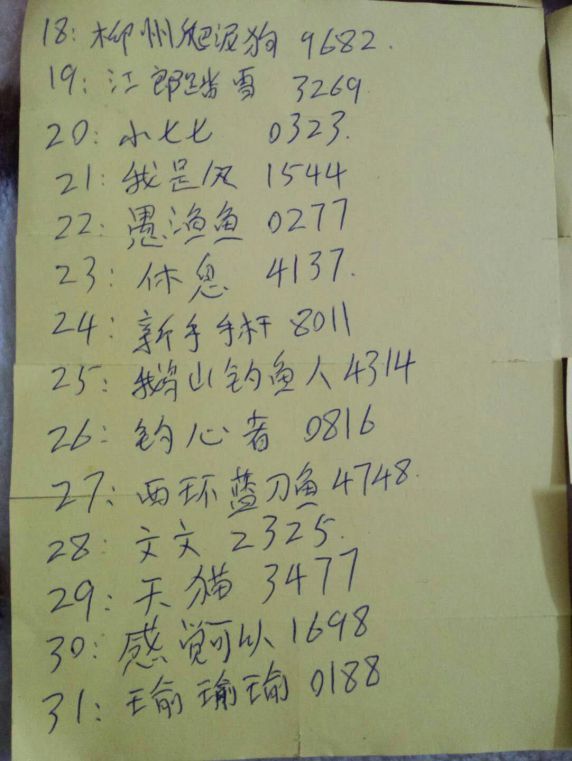 18: 柳州爬泥狗 9682.
19: 江郎踏雪 3269
20: 小七七 0323.
21: 我是风 1544
22: 愚渔鱼 0277
23: 休息 4137.
24: 新手手杆 8011
25: 鹅山钓鱼人 4314
26: 钓心者 0816
27: 西环蓝刀鱼 4748.
28: 文文 2325.
29: 天猫 3477
30: 感觉可以 1698
31: 瑜瑜瑜 0188